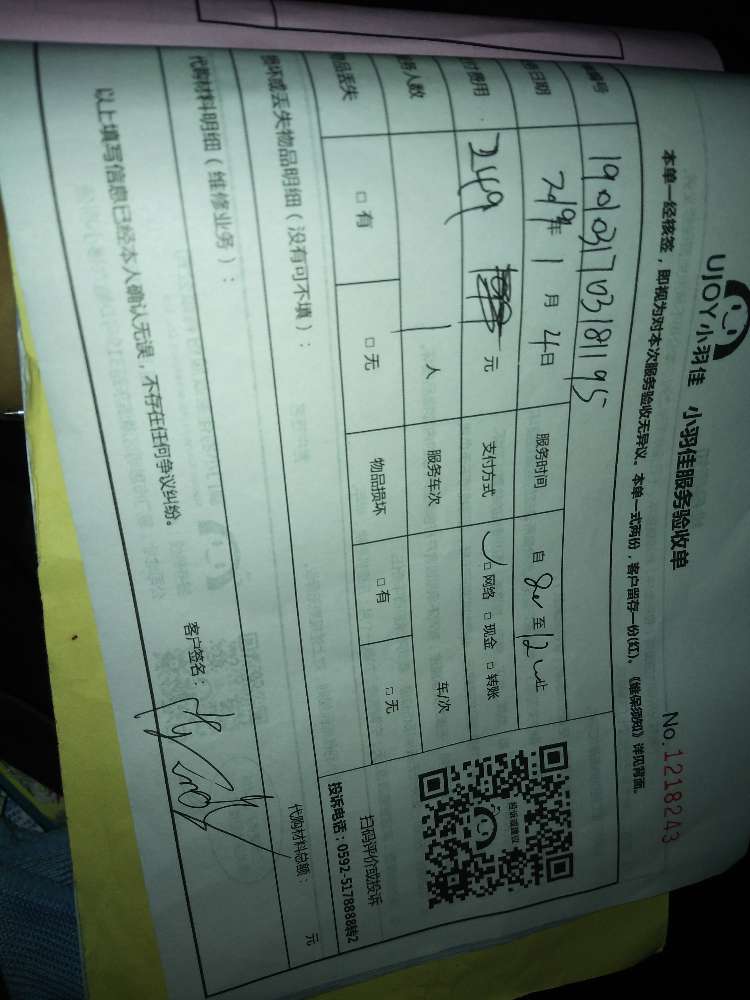 UJOY小羽佳 小羽佳服务验收单
No.1218243
本单一经核签，即视为对本次服务验收无异议。本单一式两份，客户留存一份(红)。《维保须知》详见背面。
编号 1901031703181195
日期 2019年 1 月 4日 服务时间 自 8 至 12
付费用 249 元 支付方式 □网络 □现金 □转账
人数 1 人 服务车次 车/次
物品丢失 □有 □无 物品损坏 □有 □无
投诉或建议
扫码评价或投诉
投诉电话：0592-5178888转2
损坏或丢失物品明细（没有可不填）：
代购材料明细（维修业务）：
代购材料总额： 元
以上填写信息已经本人确认无误，不存在任何争议纠纷。
客户签名：